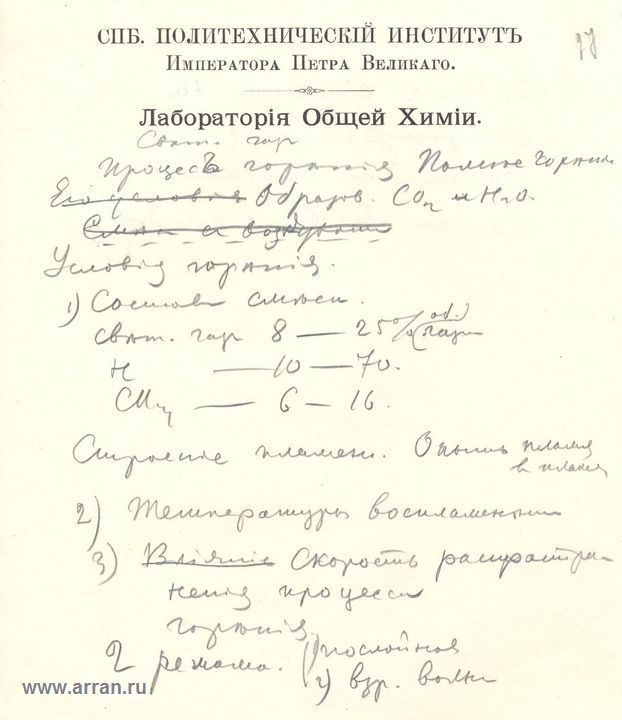 СПБ. ПОЛИТЕХНИЧЕСКІЙ ИНСТИТУТЪ
ИМПЕРАТОРА ПЕТРА ВЕЛИКАГО.
77
Лабораторія Общей Химіи.
Свѣт. газ
Процесъ горѣнія Полное горѣніе
Его условія Образов. CO2 и H2O.
Смѣси съ воздухомъ
Условія горѣнія.
1) Составъ смѣси.
свѣт. газ 8 — 25% (об.) газа
H — 10 — 70.
CH4 — 6 — 16.
Строеніе пламени. Опытъ пламя
в пламя
2) Температуры воспламененія
3) Вліяніе Скорость распростра
ненія процесса
горѣнія
2 режима. 1) послойное
2) взр. волны
www.arran.ru